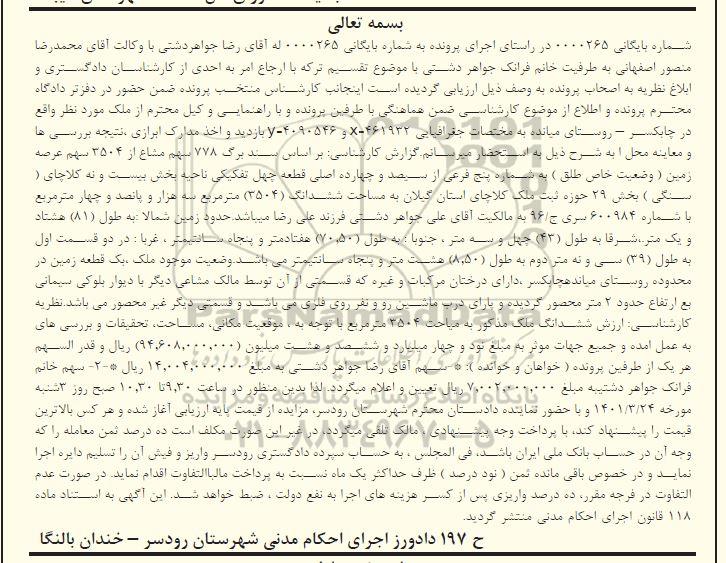 بسمه تعالی
شـماره بایگانی ۰۰۰۰۲۶۵ در راستای اجرای پرونده به شماره بایگانی ۰۰۰۰۲۶۵ له آقای رضا جواهردشتی با وکالت آقای محمدرضا
منصور اصفهانی به طرفیت خانم فرانک جواهر دشـتی با موضوع تقسـیم ترکه با ارجاع امر به احدی از کارشناسـان دادگستری و
ابلاغ نظریه به اصحاب پرونده به وصف ذیل ارزیابی گردیده اسـت اینجانب کارشـناس منتخـب پرونده ضمن حضور در دفزتر دادگاه
محتـرم پرونده و اطلاع از موضوع کارشناسـی ضمن هماهنگی با طرفین پرونده و با راهنمایـی و کیل محترم از ملک مورد نظر واقع
در چابکسـر – روستـای میانده به مختصات جغرافیایی x-۴۶۱۹۳۲ و y-۴۰۹۰۵۴۶ بازدید و اخذ مدارک ابرازی ،نتیجه بررسی ها
و معاینه محل ا به شـرح ذیل به اسـتحضار میرسـانم.گزارش کارشناسی: بر اساس سـند برگ ۷۷۸ سهم مشاع از ۳۵۰۴ سهم عرصه
زمین ( وضعیت خاص طلق ) به شـماره پنج فرعی از سـیصد و چهارده اصلی قطعه چهل تفکیکی ناحیه بخش بیسـت و نه کلاچای (
سـنگی ) بخش ۲۹ حوزه ثبت ملک کلاچای استان گیلان به مساحت ششـدانگ (۳۵۰۴) مترمربع سه هزار و پانصد و چهار مترمربع
با شـماره ۶۰۰۹۸۴ سری ج/۹۶ به مالکیت آقای علی جواهر دشتـی فرزند علی رضا میباشد.حدود زمین شمالا :به طول (۸۱) هشتاد
و یک متر.،شـرقا به طول (۴۳) چهل و سـه متر ، جنوبا : به طول (۷۰,۵۰) هفتادمتر و پنجاه سـانتیمتر ، غربا : در دو قسـمت اول
به طول (۳۹) سـی و نه متر دوم به طول (۸,۵۰) هشـت متر و پنجاه سـانتیمتر می باشـد.وضعیت موجود ملک ،یک قطعه زمین در
محدوده روسـتای میاندهچابکسر ،دارای درختان مرکبات و غیره که قسـمتی از آن توسط مالک مشاعی دیگر با دیوار بلوکی سیمانی
بع ارتفاع حدود ۲ متر محصور گردیده و یارای درب ماشـین رو و نفر روی فلزی می باشـد و قسمتی دیگر غیر محصور می باشد.نظریه
کارشناسـی: ارزش ششـدانگ ملک مذکور به میاحت ۳۵۰۴ مترمربع با توجه به ، موقعیت مکانی، مسـاحت، تحقیقات و بررسی های
به عمل امده و جمیع جهات موثر به مبلغ نود و چهار میلیارد و ششـصد و هشـت میلیون (۹۴,۶۰۸,۰۰۰,۰۰۰) ریال و قدر السـهم
هر یک از طرفین پرونده ( خواهان و خوانده ): *-سـهم آقای رضا جواهر دشـتی به مبلغ ۱۴,۰۰۴,۰۰۰,۰۰۰ ریال *-۲- سهم خانم
فرانک جواهر دشتیبه مبلغ ۷,۰۰۲,۰۰۰,۰۰۰ ریال تعیین و اعلام میگردد. لذا بدین منظور در ساعت ۹,۳۰تا ۱۰,۳۰ صبح روز ۳شنبه
مورخه ۱۴۰۱/۳/۲۴ و با حضور نماینده دادستان محترم شهرستان رودسر، مزایده از قیمت پایه ارزیابی آغاز شده و هر کس بالاترین
قیمت را پیشنهاد کند، با پرداخت وجه پیشنهادی ، مالک تلقی میگردد، در غیر این صورت مکلف است ده درصد ثمن معامله را که
وجه آن در حساب بانک ملی ایران باشـد، فی المجلس ، به حساب سپرده دادگستری رودسـر واریز و فیش آن را تسلیم دایره اجرا
نمایـد و در خصوص باقی مانده ثمن ( نود درصد ) ظرف حداکثر یک ماه نسـبت به پرداخت مالبالتفاوت اقدام نماید. در صورت عدم
التفاوت در فرجه مقرر، ده درصد واریزی پس از کسـر هزینه های اجرا به نفع دولت ، ضبط خواهد شـد. این آگهی به اسـتناد ماده
۱۱۸ قانون اجرای احکام مدنی منتشر گردید.
ح ۱۹۷ دادورز اجرای احکام مدنی شهرستان رودسر – خندان بالنگا
ParsNamadData
پایگاه اطلاع رسانی مناقصه و مزایده
۰۲۱-۸۸۳۴۹۶۷۰-۵